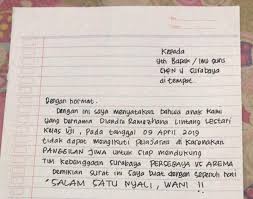 Kepada
Yth Bapak / Ibu guru
SMPN V Surabaya
di tempat
Dengan hormat.
Dengan ini saya menyatakan bahwa anak kami
yang bernama Diandra Ramadhana Lintang Lestari
Kelas VII, Pada tanggal 09 APRIL 2019
tidak dapat mengikuti pelajaran di karenakan
PANGGILAN JIWA untuk siap mendukung
Tim kebanggaan Surabaya PERSEBAYA VS AREMA
Demikian surat ini saya buat dengan sepenuh hati
"SALAM SATU NYALI, WANI !!